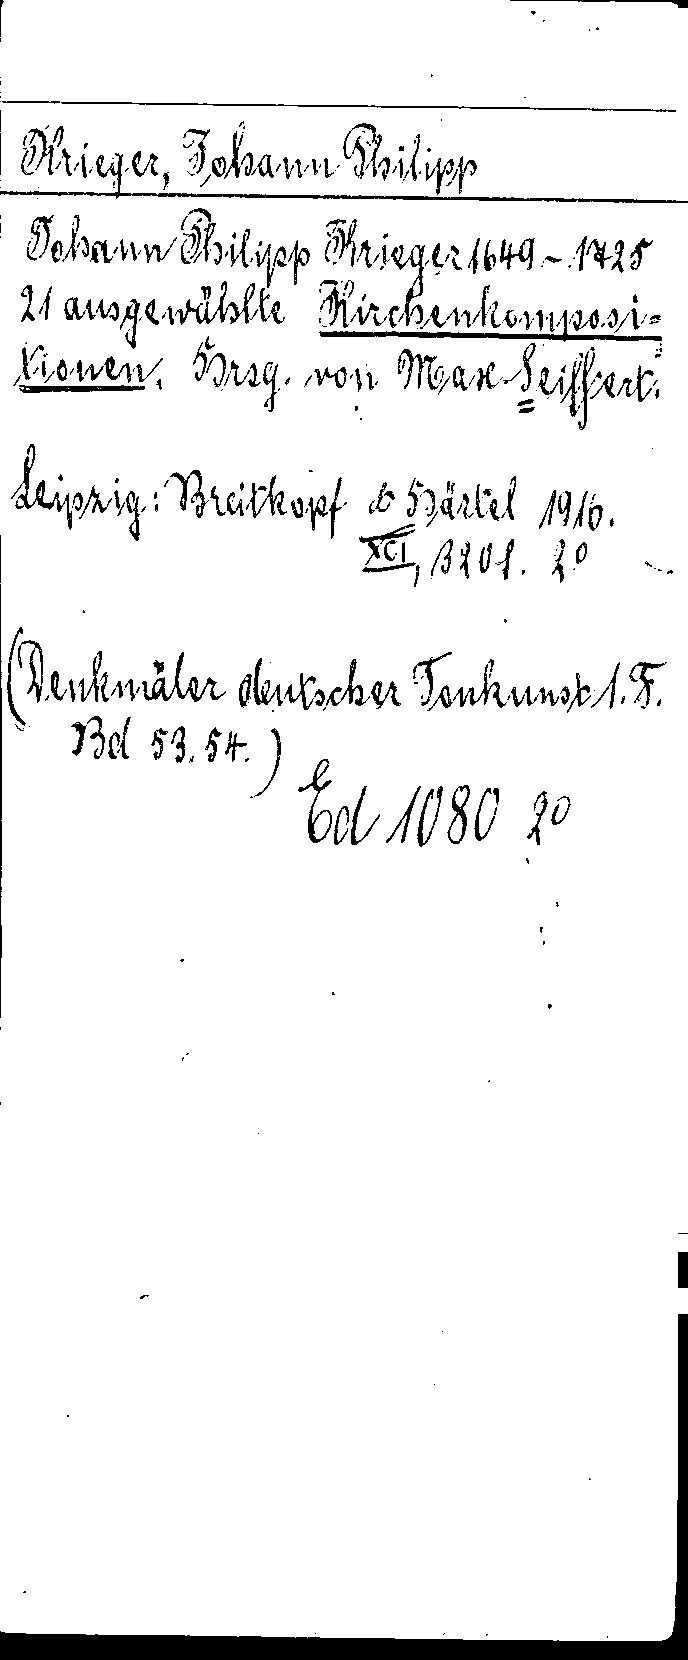 Krieger, Johann Philipp
Johann Philipp Krieger 1649-1725
21 ausgewählte Kirchenkomposi=
tionen. Hrsg. von Max Seiffert.
Leipzig: Breitkopf & Härtel 1916.
XCI, 320 S. 2°
(Denkmäler deutscher Tonkunst 1. F.
Bd 53. 54.)
Ed 1080 2°